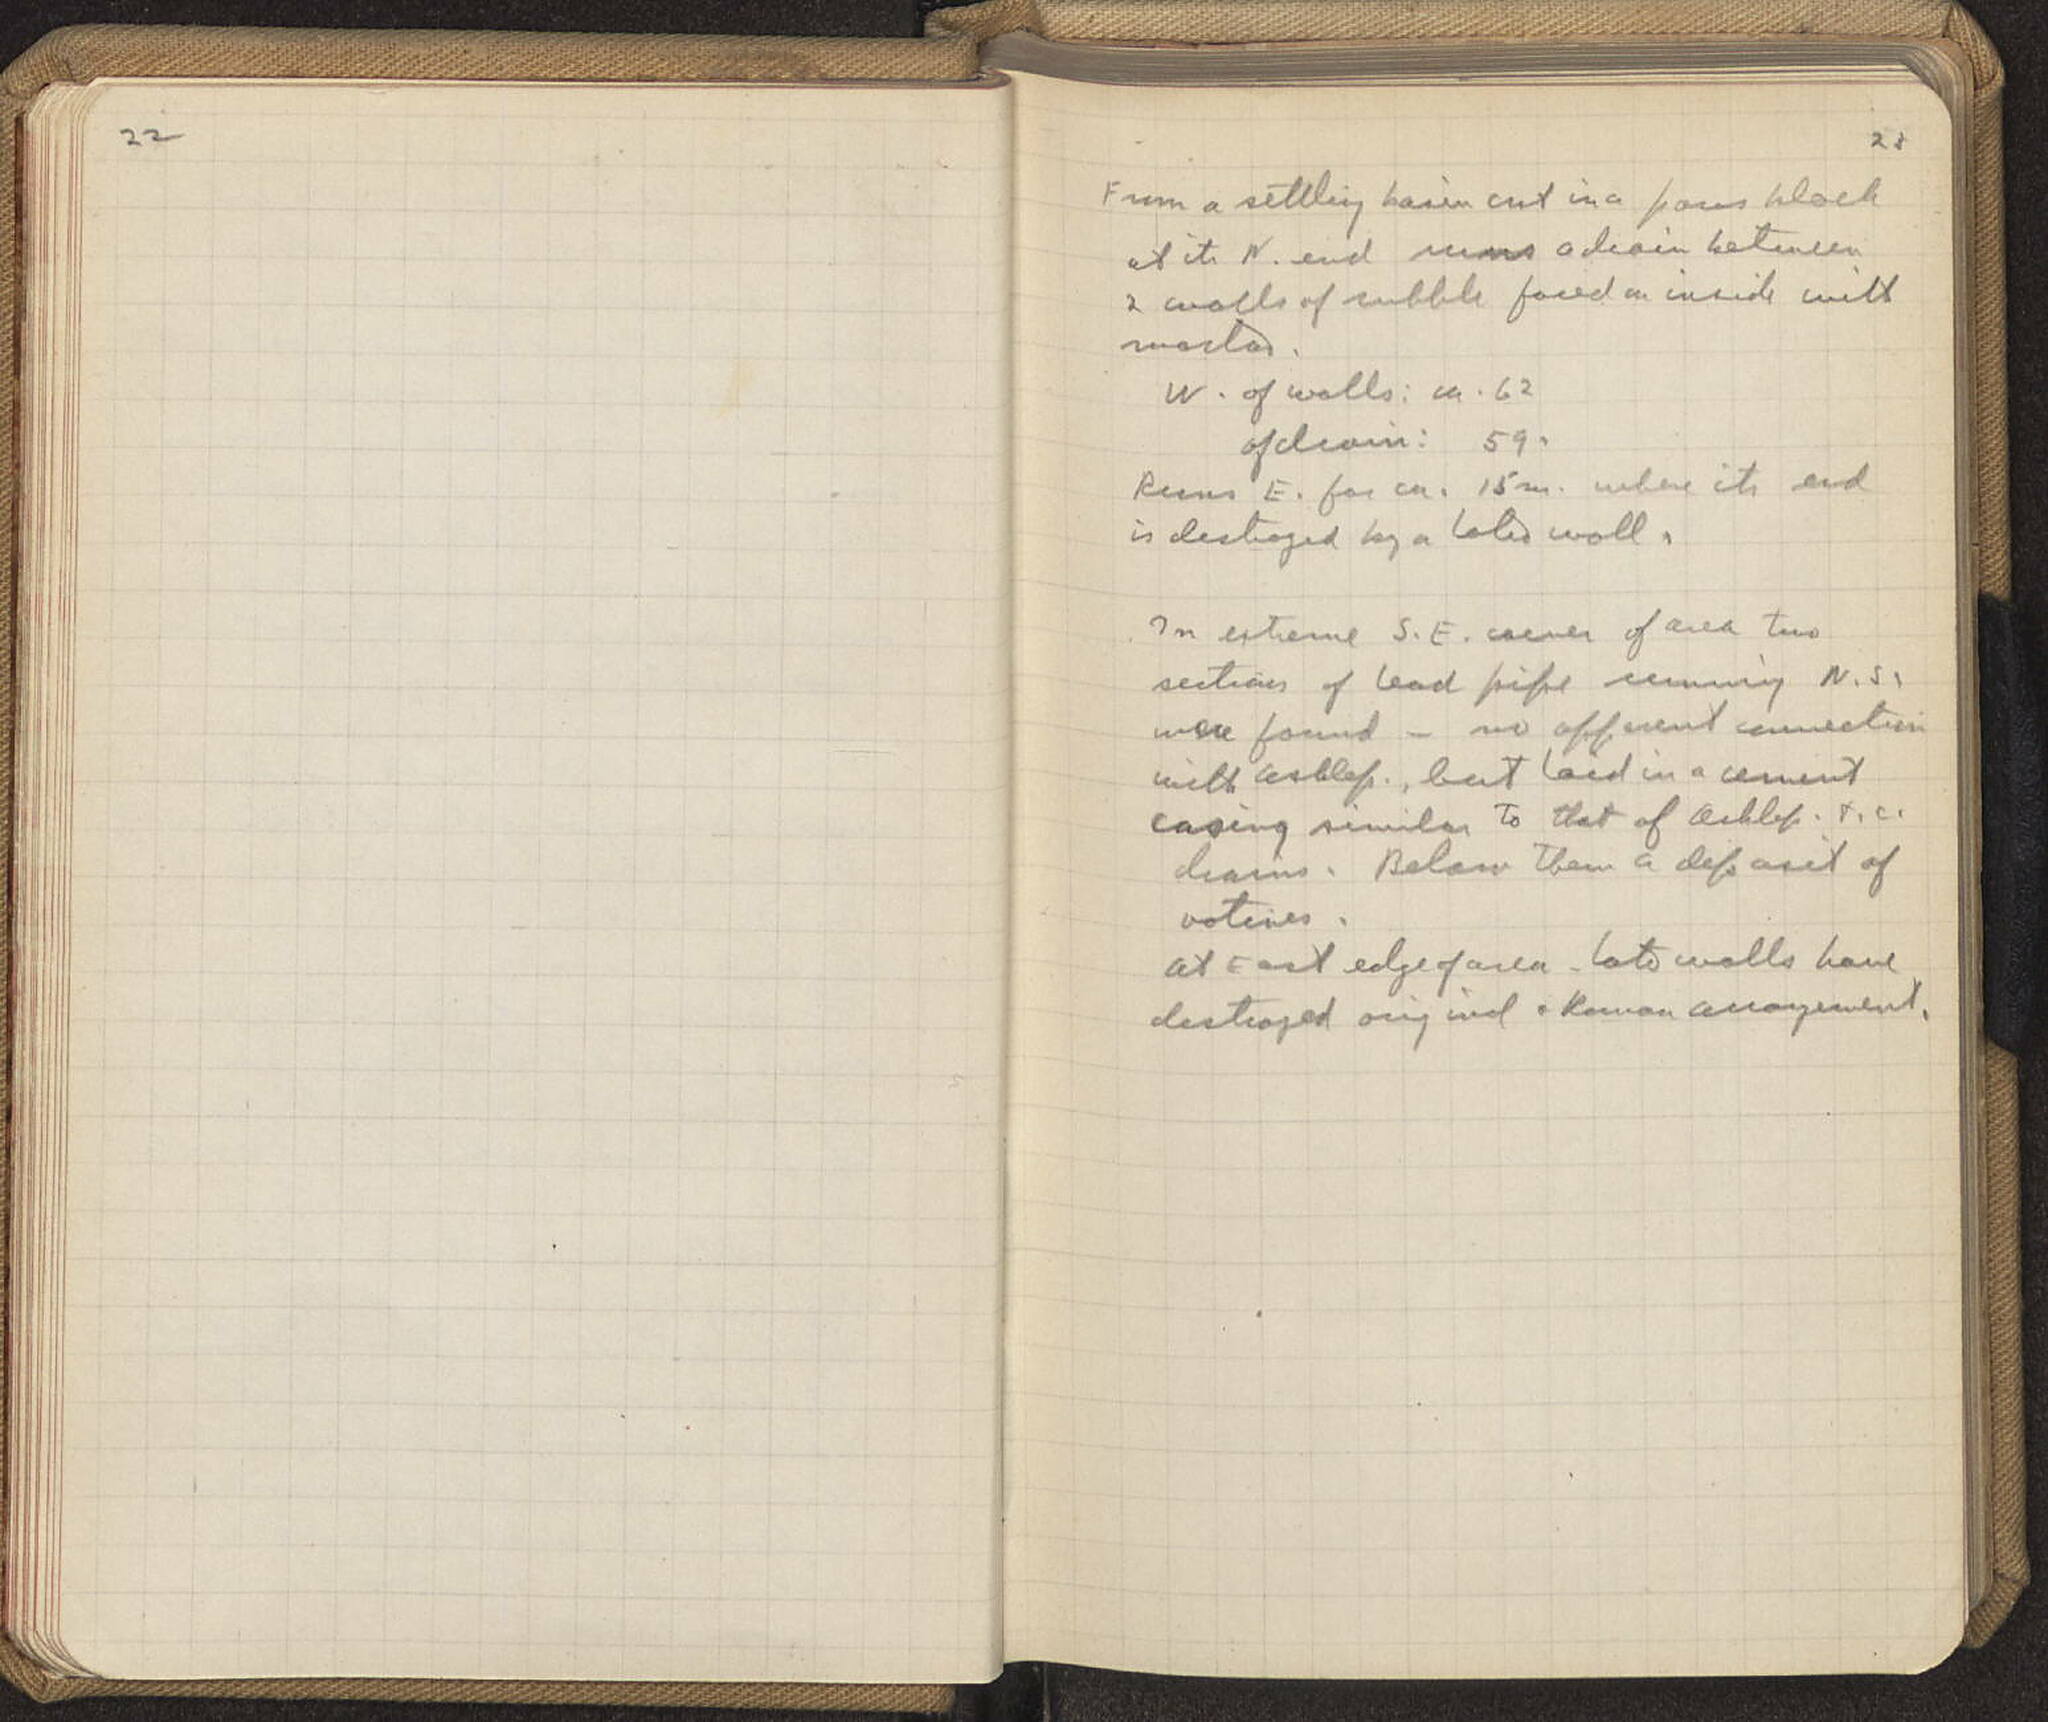 22
23
From a settling basin cut in a poros block
at its N. end runs a drain between
2 walls of rubble faced on inside with
mortar.
W. of walls: ca. 62
of drain: 59.
Runs E. for ca. 15m. where its end
is destroyed by a later wall.
In extreme S.E. corner of area two
sections of lead pipe running N.S.
were found - no apparent connection
with Asklep., but laid in a cement
casing similar to that of Asklep. t.c.
drains. Below them a deposit of
votives.
At East edge of area - late walls have
destroyed original + Roman arrangement.